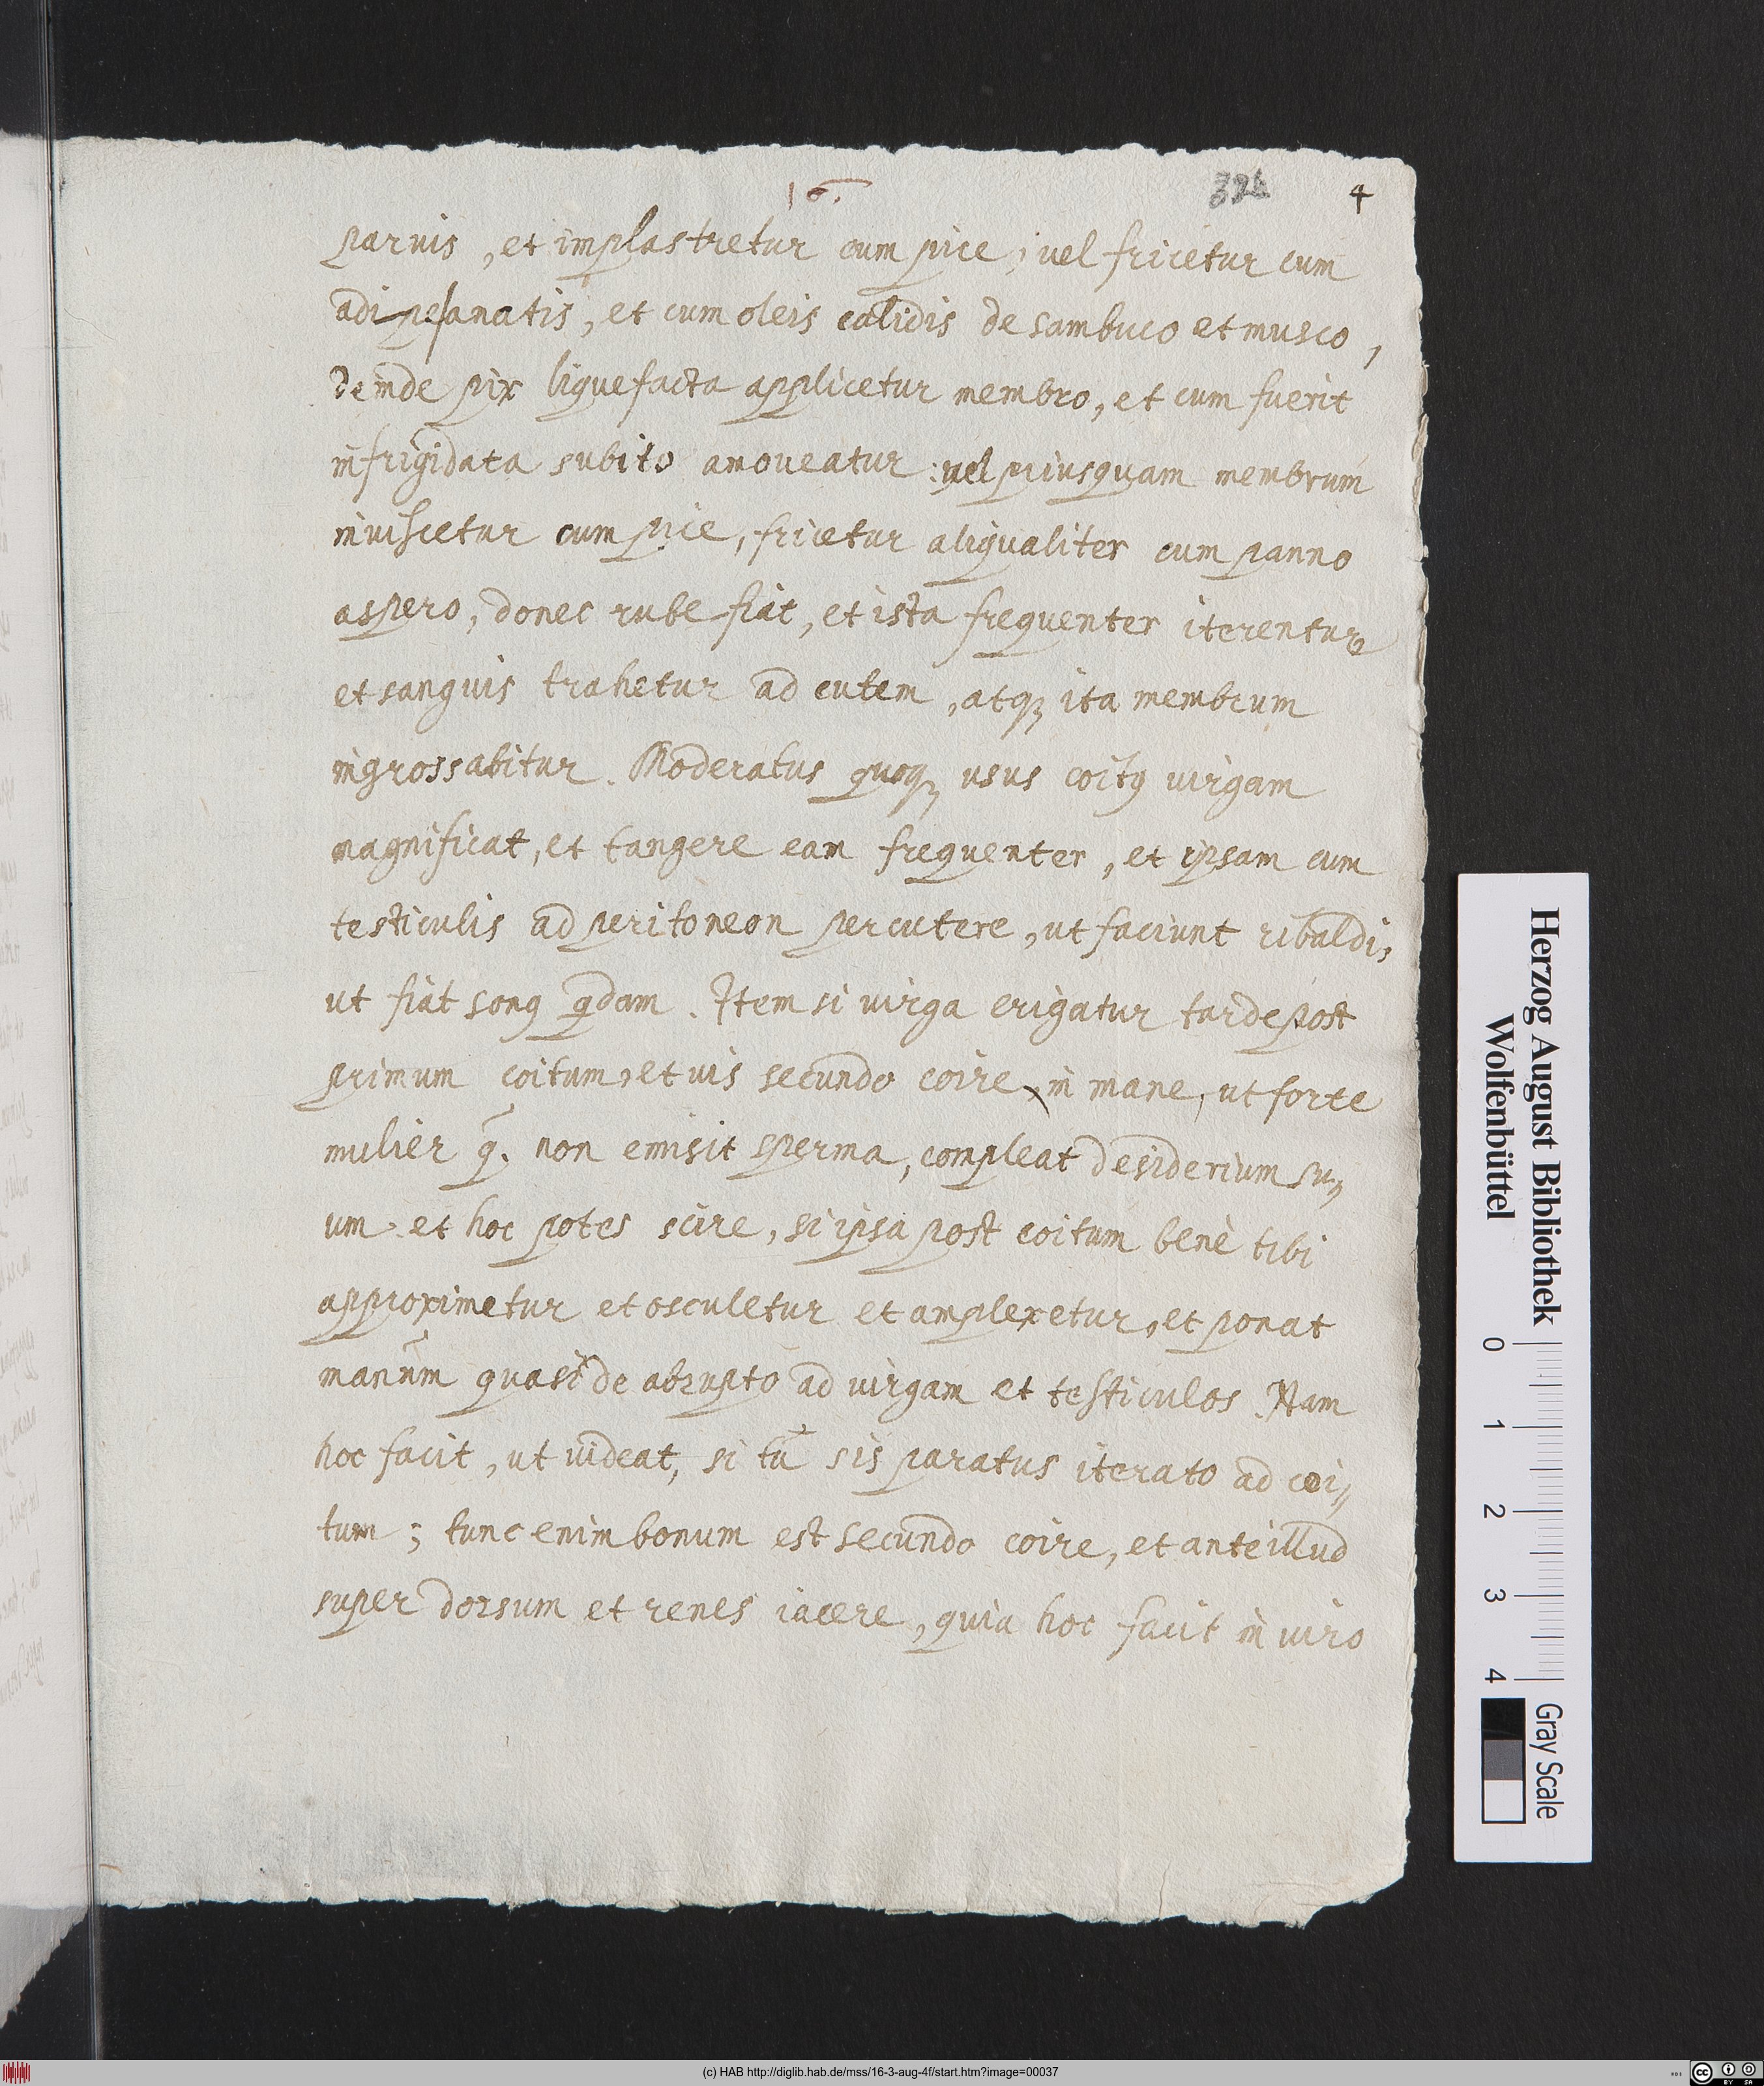 16.
4
parvis, et implastretur cum pice; vel fricetur cum
adipe anatis, et cum oleis calidis de sambuco et musco,
deinde pix liquefacta applicetur membro, et cum fuerit
infrigidata subito amoveatur: vel priusquam membrum
inviscetur cum pice, fricetur aliqualiter cum panno
aspero, donec rube fiat, et ista frequenter iterentur
et sanguis trahetur ad cutem, atq; ita membrum
ingrossabitur. Moderatus quoq; usus coitꝰ virgam
magnificat, et tangere eam frequenter, et ipsam cum
testiculis ad peritoneon percutere, ut faciunt ribaldi,
ut fiat sonꝰ qdam. Item si virga erigatur tarde post
primum coitum, et vis secundo coire, in mane, ut forte
mulier q. non emisit sperma, compleat desiderium su,,
um et hoc potes scire, si ipsa post coitum benè tibi
approximetur et osculetur et amplexetur, et ponat
manum quasi de abrupto ad virgam et testiculos. Nam
hoc facit, ut videat, si tu sis paratus iterato ad coi,,
tum; tunc enim bonum est secundo coire, et ante illud
super dorsum et renes iacere, quia hoc facit in viro
Herzog August Bibliothek
Wolfenbüttel
0 1 2 3 4
Gray Scale
(c) HAB http://diglib.hab.de/mss/16-3-aug-4f/start.htm?image=00037
cc BY SA